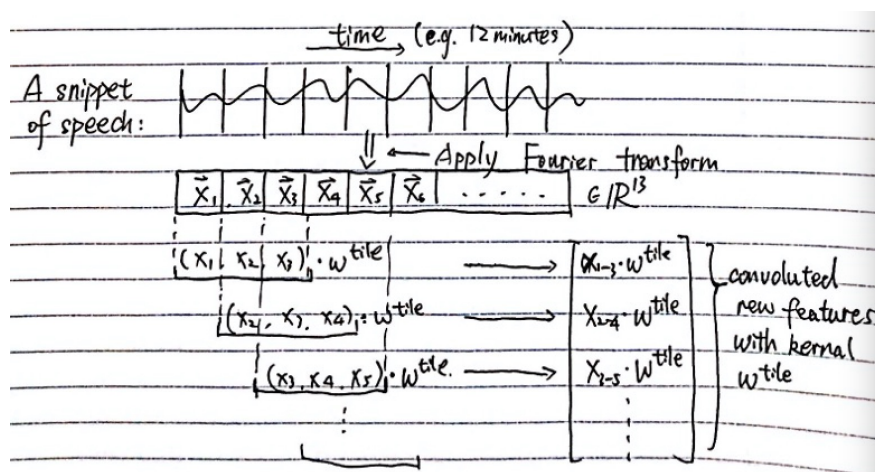 time (e.g. 12 minutes)
A snippet
of speech:
Apply Fourier transform
X⃗₁ X⃗₂ X⃗₃ X⃗₄ X⃗₅ X⃗₆ ..... ∈ ℝ¹³
(x₁, x₂, x₃) · w^tile → X₁₋₃ · w^tile
(x₂, x₃, x₄) · w^tile → X₂₋₄ · w^tile
(x₃, x₄, x₅) · w^tile → X₃₋₅ · w^tile
convoluted
new features
with kernal
w^tile